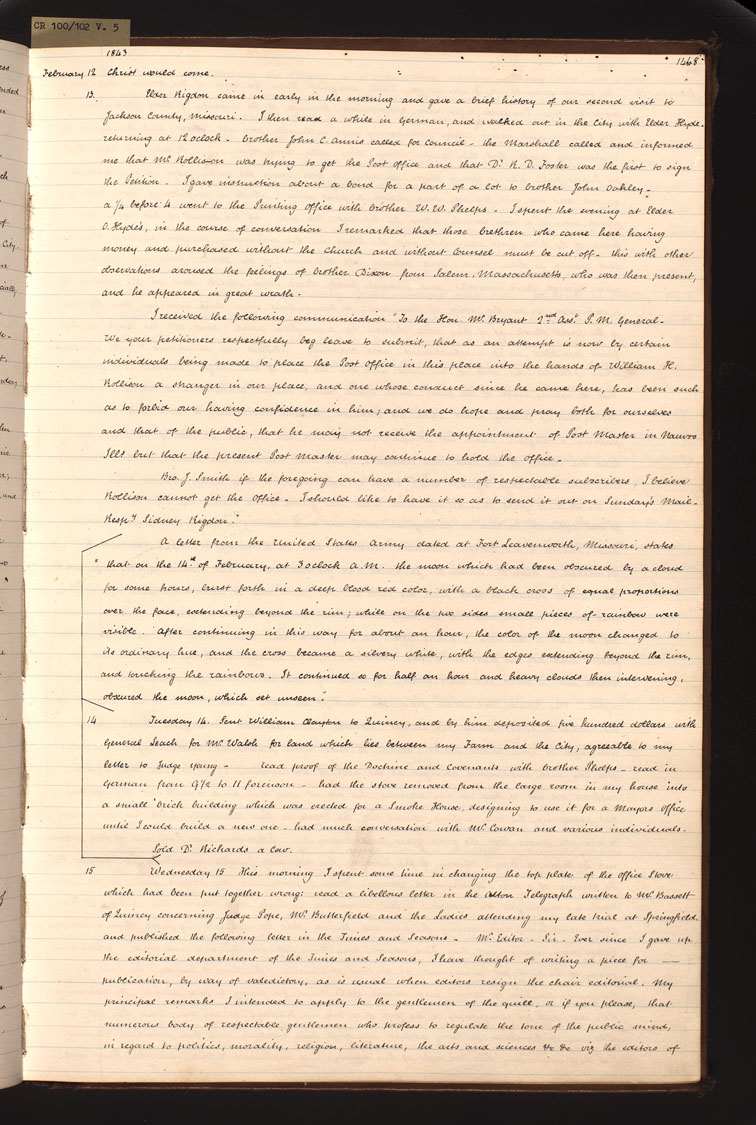 CR 100/102 V. 5
1843
1468
February 12 Christ would come.
13. Elder Rigdon came in early in the morning and gave a brief history of our second visit to
Jackson County, Missouri. I then read a while in German, and walked out in the City with Elder Hyde.
returning at 12 oclock - brother John C. Annis called for Council - the Marshall called and informed
me that Mr Rollison was trying to get the Post office and that Dr R. D. Foster was the first to sign
the Petition. I gave instruction about a bond for a part of a lot to brother John Oakley -
a 1/4 before 4 went to the Printing Office with brother W. W. Phelps - I spent the evening at Elder
O. Hyde's, in the course of conversation I remarked that those brethren who came here having
money and purchased without the Church and without Counsel must be cut off - this with other
observations aroused the feelings of brother Dixon from Salem, Massachusetts, who was then present,
and he appeared in great wrath -
I received the following communication "To the Hon Mr Bryant 2nd Asst P. M. General -
We your petitioners respectfully beg leave to submit, that as an attempt is now by certain
individuals being made to place the Post Office in this place into the hands of William H.
Rollison a stranger in our place, and one whose conduct since he came here, has been such
as to forbid our having confidence in him; and we do hope and pray both for ourselves
and that of the public, that he may not receive the appointment of Post Master in Nauvoo
Ills but that the present Post Master may continue to hold the office -
Bro. J. Smith if the foregoing can have a number of respectable subscribers, I believe
Rollison cannot get the Office - I should like to have it so as to send it out on Sunday's Mail -
Respy Sidney Rigdon."
A letter from the United States Army dated at Fort Leavenworth, Missouri, states
"that on the 14th of February, at 3 oclock A.M. the moon which had been obscured by a cloud
for some hours, burst forth in a deep blood red color, with a black cross of equal proportions
over the face, extending beyond the rim; while on the two sides small pieces of rainbow were
visible. After continuing in this way for about an hour, the color of the moon changed to
its ordinary hue, and the cross became a silvery white, with the edges extending beyond the rim,
and touching the rainbows. It continued so for half an hour and heavy clouds then intervening,
obscured the moon, which set unseen".
14 Tuesday 14. Sent William Clayton to Quincy, and by him deposited five hundred dollars with
General Leach for Mr Walsh for land which lies between my Farm and the City, agreeable to my
letter to Judge Young - read proof of the Doctrine and Covenants with brother Phelps - read in
German from 9 1/2 to 11 forenoon - had the stove removed from the large room in my house into
a small brick building which was erected for a Smoke House, designing to use it for a Mayors Office
until I could build a new one - had much conversation with Mr Cowan and various individuals -
Sold Dr Richards a Cow.
15 Wednesday 15 This morning I spent some time in changing the top plate of the office Stove
which had been put together wrong: read a libellous letter in the Alton Telegraph written to Mr Bassett
of Quincy concerning Judge Pope, Mr Butterfield and the Ladies attending my late trial at Springfield.
and published the following letter in the Times and Seasons - Mr Editor - Sir - Ever since I gave up
the editorial department of the Times and Seasons, I have thought of writing a piece for —
publication, by way of valedictory, as is usual when editors resign the chair editorial. My
principal remarks I intended to apply to the gentlemen of the quill, or if you please, that
numerous body of respectable gentlemen who profess to regulate the tone of the public mind,
in regard to politics, morality, religion, literature, the arts and sciences &c &c viz the editors of